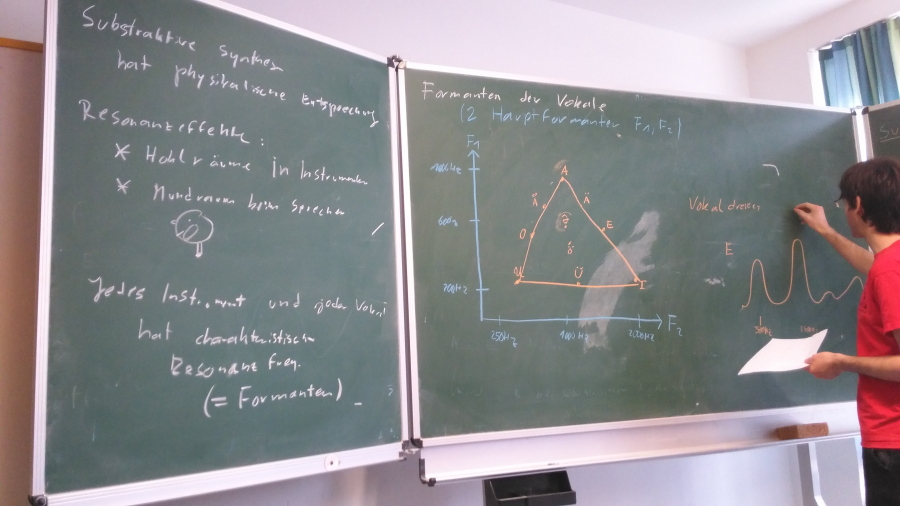 Substraktive Synthese
hat physikalische Entsprechung
Resonanzeffekte:
* Hohlräume in Instrumenten
* Mundraum beim Sprechen
Jedes Instrument und jeder Vokal
hat charakteristische
Resonanz Freq.
(= Formanten)
Formanten der Vokale
(2 Hauptformanten F1, F2)
F1
1000Hz
A
Å Ä
O E
U Ü I
F2
1000Hz
Vokaldreieck
E